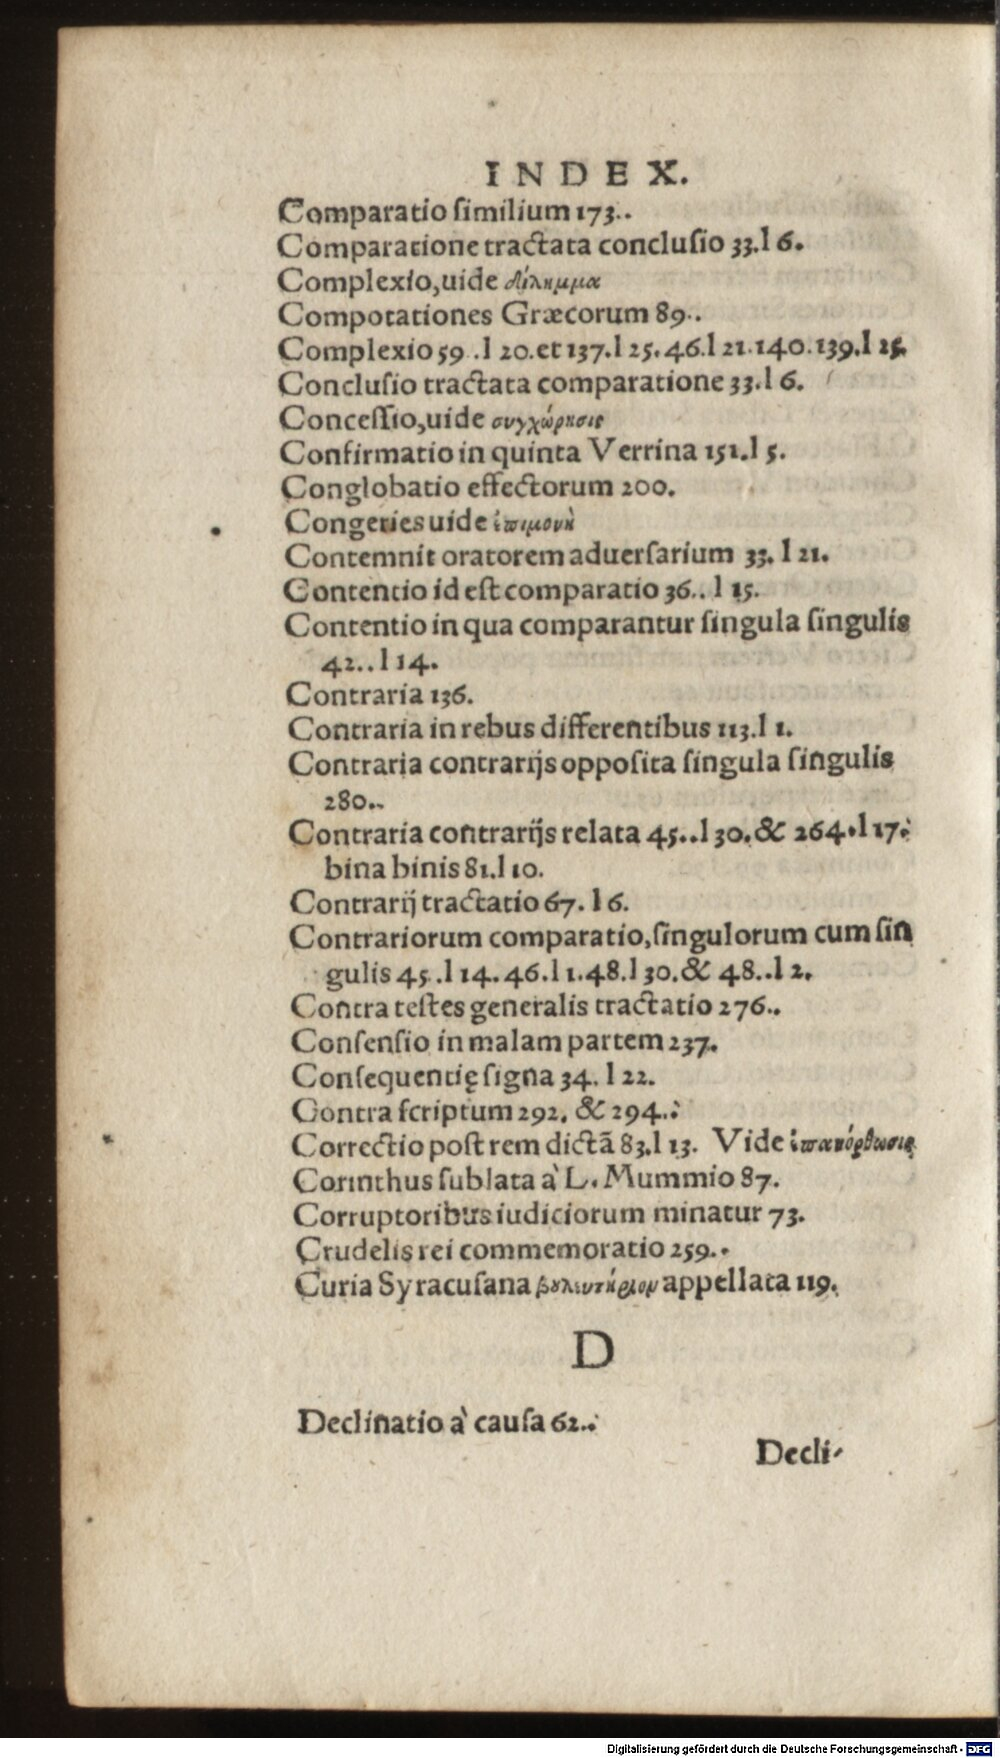 INDEX.
Comparatio ſimilium 173..
Comparatione tractata concluſio 33.l 6.
Complexio, uide δίλημμα
Compotationes Græcorum 89..
Complexio 59 .l 20.et 137.l 25. 46.l 21.140.139.l 25.
Concluſio tractata comparatione 33.l 6.
Conceſſio, uide συγχώρησις
Confirmatio in quinta Verrina 151.l 5.
Conglobatio effectorum 200.
Congeries uide ἐπιμονὴ
Contemnit oratorem aduerſarium 33. l 21.
Contentio id eſt comparatio 36.. l 15.
Contentio in qua comparantur ſingula ſingulis
42..l 14.
Contraria 136.
Contraria in rebus differentibus 113.l 1.
Contraria contrarijs oppoſita ſingula ſingulis
280..
Contraria contrarijs relata 45..l 30. & 264.l 17.
bina binis 81.l 10.
Contrarij tractatio 67. l 6.
Contrariorum comparatio, ſingulorum cum ſin
gulis 45..l 14. 46.l 1.48.l 30.& 48..l 2.
Contra teſtes generalis tractatio 276..
Conſenſio in malam partem 237.
Conſequentię ſigna 34. l 22.
Contra ſcriptum 292. & 294..
Correctio poſt rem dictã 83.l 13. Vide ἐπανόρθωσις
Corinthus ſublata à L. Mummio 87.
Corruptoribus iudiciorum minatur 73.
Crudelis rei commemoratio 259..
Curia Syracuſana βουλευτήριον appellata 119.
D
Declinatio à cauſa 62..
Decli-
Digitalisierung gefördert durch die Deutsche Forschungsgemeinschaft - DFG